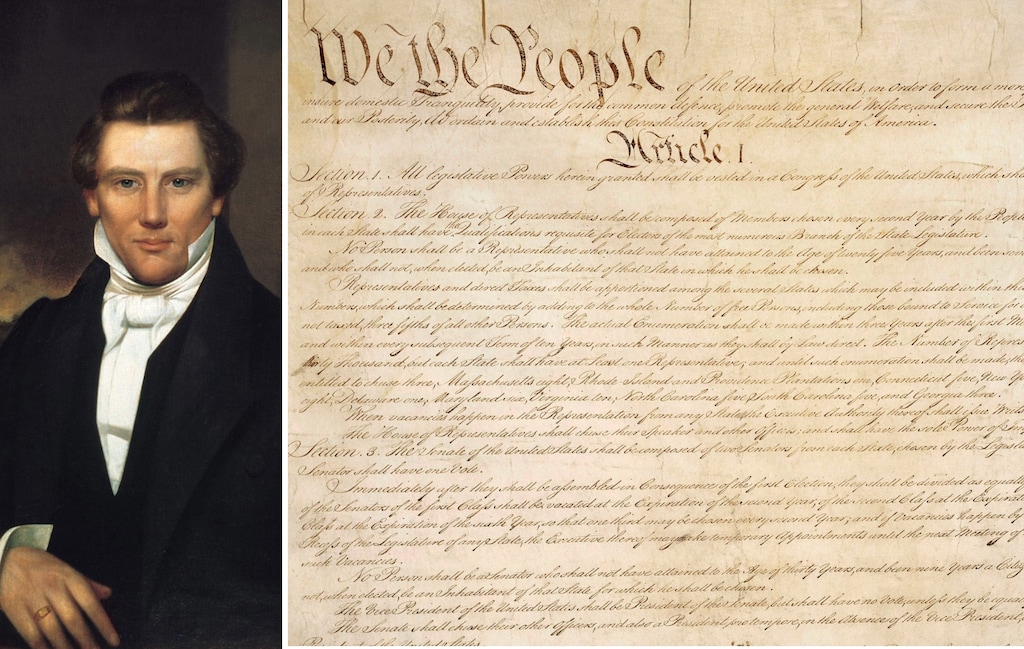 We the People of the United States, in Order to form a more
insure domestic Tranquility, provide for the common defence, promote the general Welfare, and secure the
and our Posterity, do ordain and establish this Constitution for the United States of America.
Article. I.
Section. 1. All legislative Powers herein granted shall be vested in a Congress of the United States, which shall
of Representatives.
Section. 2. The House of Representatives shall be composed of Members chosen every second Year by the People
in each State shall have the Qualifications requisite for Electors of the most numerous Branch of the State Legislature.
No Person shall be a Representative who shall not have attained to the Age of twenty five Years, and been seven
and who shall not, when elected, be an Inhabitant of that State in which he shall be chosen.
Representatives and direct Taxes shall be apportioned among the several States which may be included within this
Numbers, which shall be determined by adding to the whole Number of free Persons, including those bound to Service for
not taxed, three fifths of all other Persons. The actual Enumeration shall be made within three Years after the first
and within every subsequent Term of ten Years, in such Manner as they shall by Law direct. The Number of
thirty Thousand, but each State shall have at Least one Representative; and until such enumeration shall be made, the
entitled to chuse three, Massachusetts eight, Rhode Island and Providence Plantations one, Connecticut five, New
eight, Delaware one, Maryland six, Virginia ten, North Carolina five, South Carolina five, and Georgia three.
When vacancies happen in the Representation from any State, the Executive Authority thereof shall issue Writs
The House of Representatives shall chuse their Speaker and other Officers; and shall have the sole Power of
Section. 3. The Senate of the United States shall be composed of two Senators from each State, chosen by the
Senator shall have one Vote.
Immediately after they shall be assembled in Consequence of the first Election, they shall be divided as equally
of the Senators of the first Class shall be vacated at the Expiration of the second Year, of the second Class at the
Class at the Expiration of the sixth Year, so that one third may be chosen every second Year; and if Vacancies happen by
Recess of the Legislature of any State, the Executive thereof may make temporary Appointments until the next Meeting of
such Vacancies.
No Person shall be a Senator who shall not have attained to the Age of thirty Years, and been nine Years a
not, when elected, be an Inhabitant of that State for which he shall be chosen.
The Vice President of the United States shall be President of the Senate, but shall have no Vote, unless they be equally
The Senate shall chuse their other Officers, and also a President pro tempore, in the Absence of the Vice President,
President of the United States.